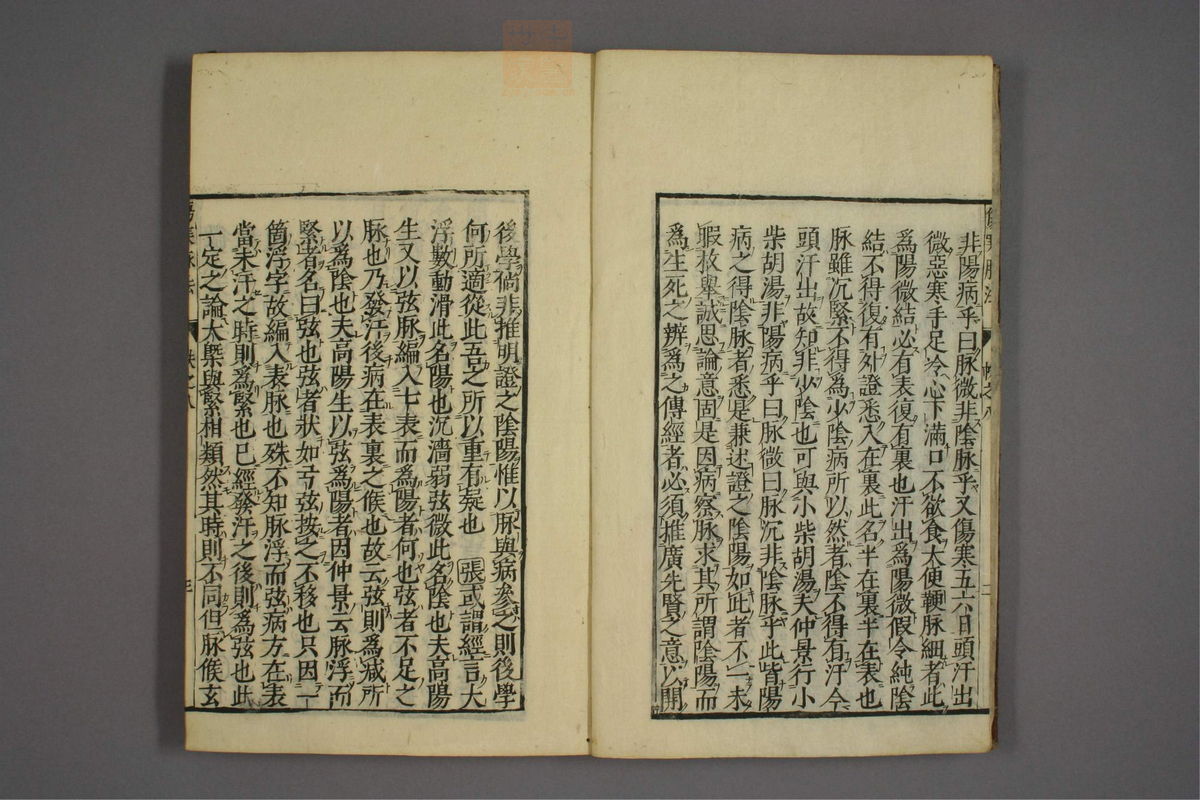 非陽病乎曰脉微非陰脉乎又傷寒五六日頭汗出
微惡寒手足冷心下滿口不欲食大便鞕脉細者此
為陽微結必有表復有裏也汗出為陽微假令純陰
結不得復有外證悉入在裏此名半在裏半在表也
脉雖沉緊不得為少陰病所以然者陰不得有汗今
頭汗出故知非少陰也可與小柴胡湯夫仲景行小
柴胡湯非陽病乎曰脉微曰脉沉非陰脉乎此皆陽
病之得陰脉者悉是兼述證之陰陽如此者不一未
暇枚舉誠思論意固是因病察脉求其所謂陰陽而
為生死之辨為之傳經者必須推廣先賢之意以開
後學倘非推明證之陰陽惟以脉與病參之則後學
何所適從此吾之所以重有疑也 張或謂經言大
浮數動滑此名陽也沉濇弱弦微此名陰也夫高陽
生又以弦脉編入七表而為陽者何也弦者不足之
脉也乃發汗後病在表裏之候也故云弦則為減所
以為陰也夫高陽生以弦為陽者因仲景云脉浮而
緊者名曰弦也弦者狀如弓弦按之不移也只因一
箇浮字故編入表脉也殊不知脉浮而弦病方在表
當未汗之時則為緊也已經發汗之後則為弦也此
一定之論大槩與緊相類然其時則不同但二脉候玄